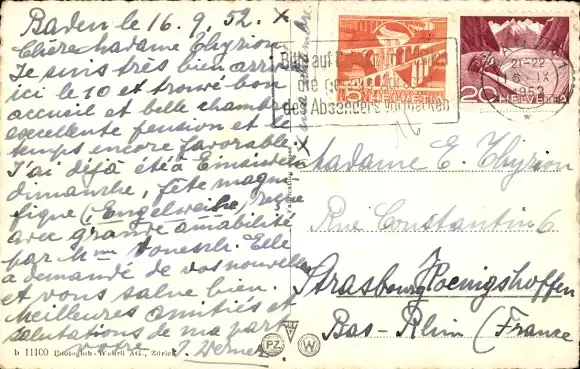 Baden le 16. 9. 52. X
Chère Madame Thyrion
Je suis très bien arrivé
ici le 10 et trouvé bon
accueil et belle chambre
excellente pension et le
temps encore favorable
J'ai déjà été à Einsiedeln
dimanche, fête magni
fique (Engelweihe) reçue
avec grande amabilité
par Mme
Elle
a demandé de vos nouvelles
et vous salue bien.
Meilleures amitiés et
salutations de ma part
votre J. Werner
b 11100 Photoglob-Wehrli AG., Zürich
PZ
W
5
HELVETIA
20 HELVETIA
21-22
16. IX
1952
Bild auf
die
des Absenders vermerken
Madame E. Thyrion
Rue Constantin 6
Strasbourg Koenigshoffen
Bas-Rhin (France